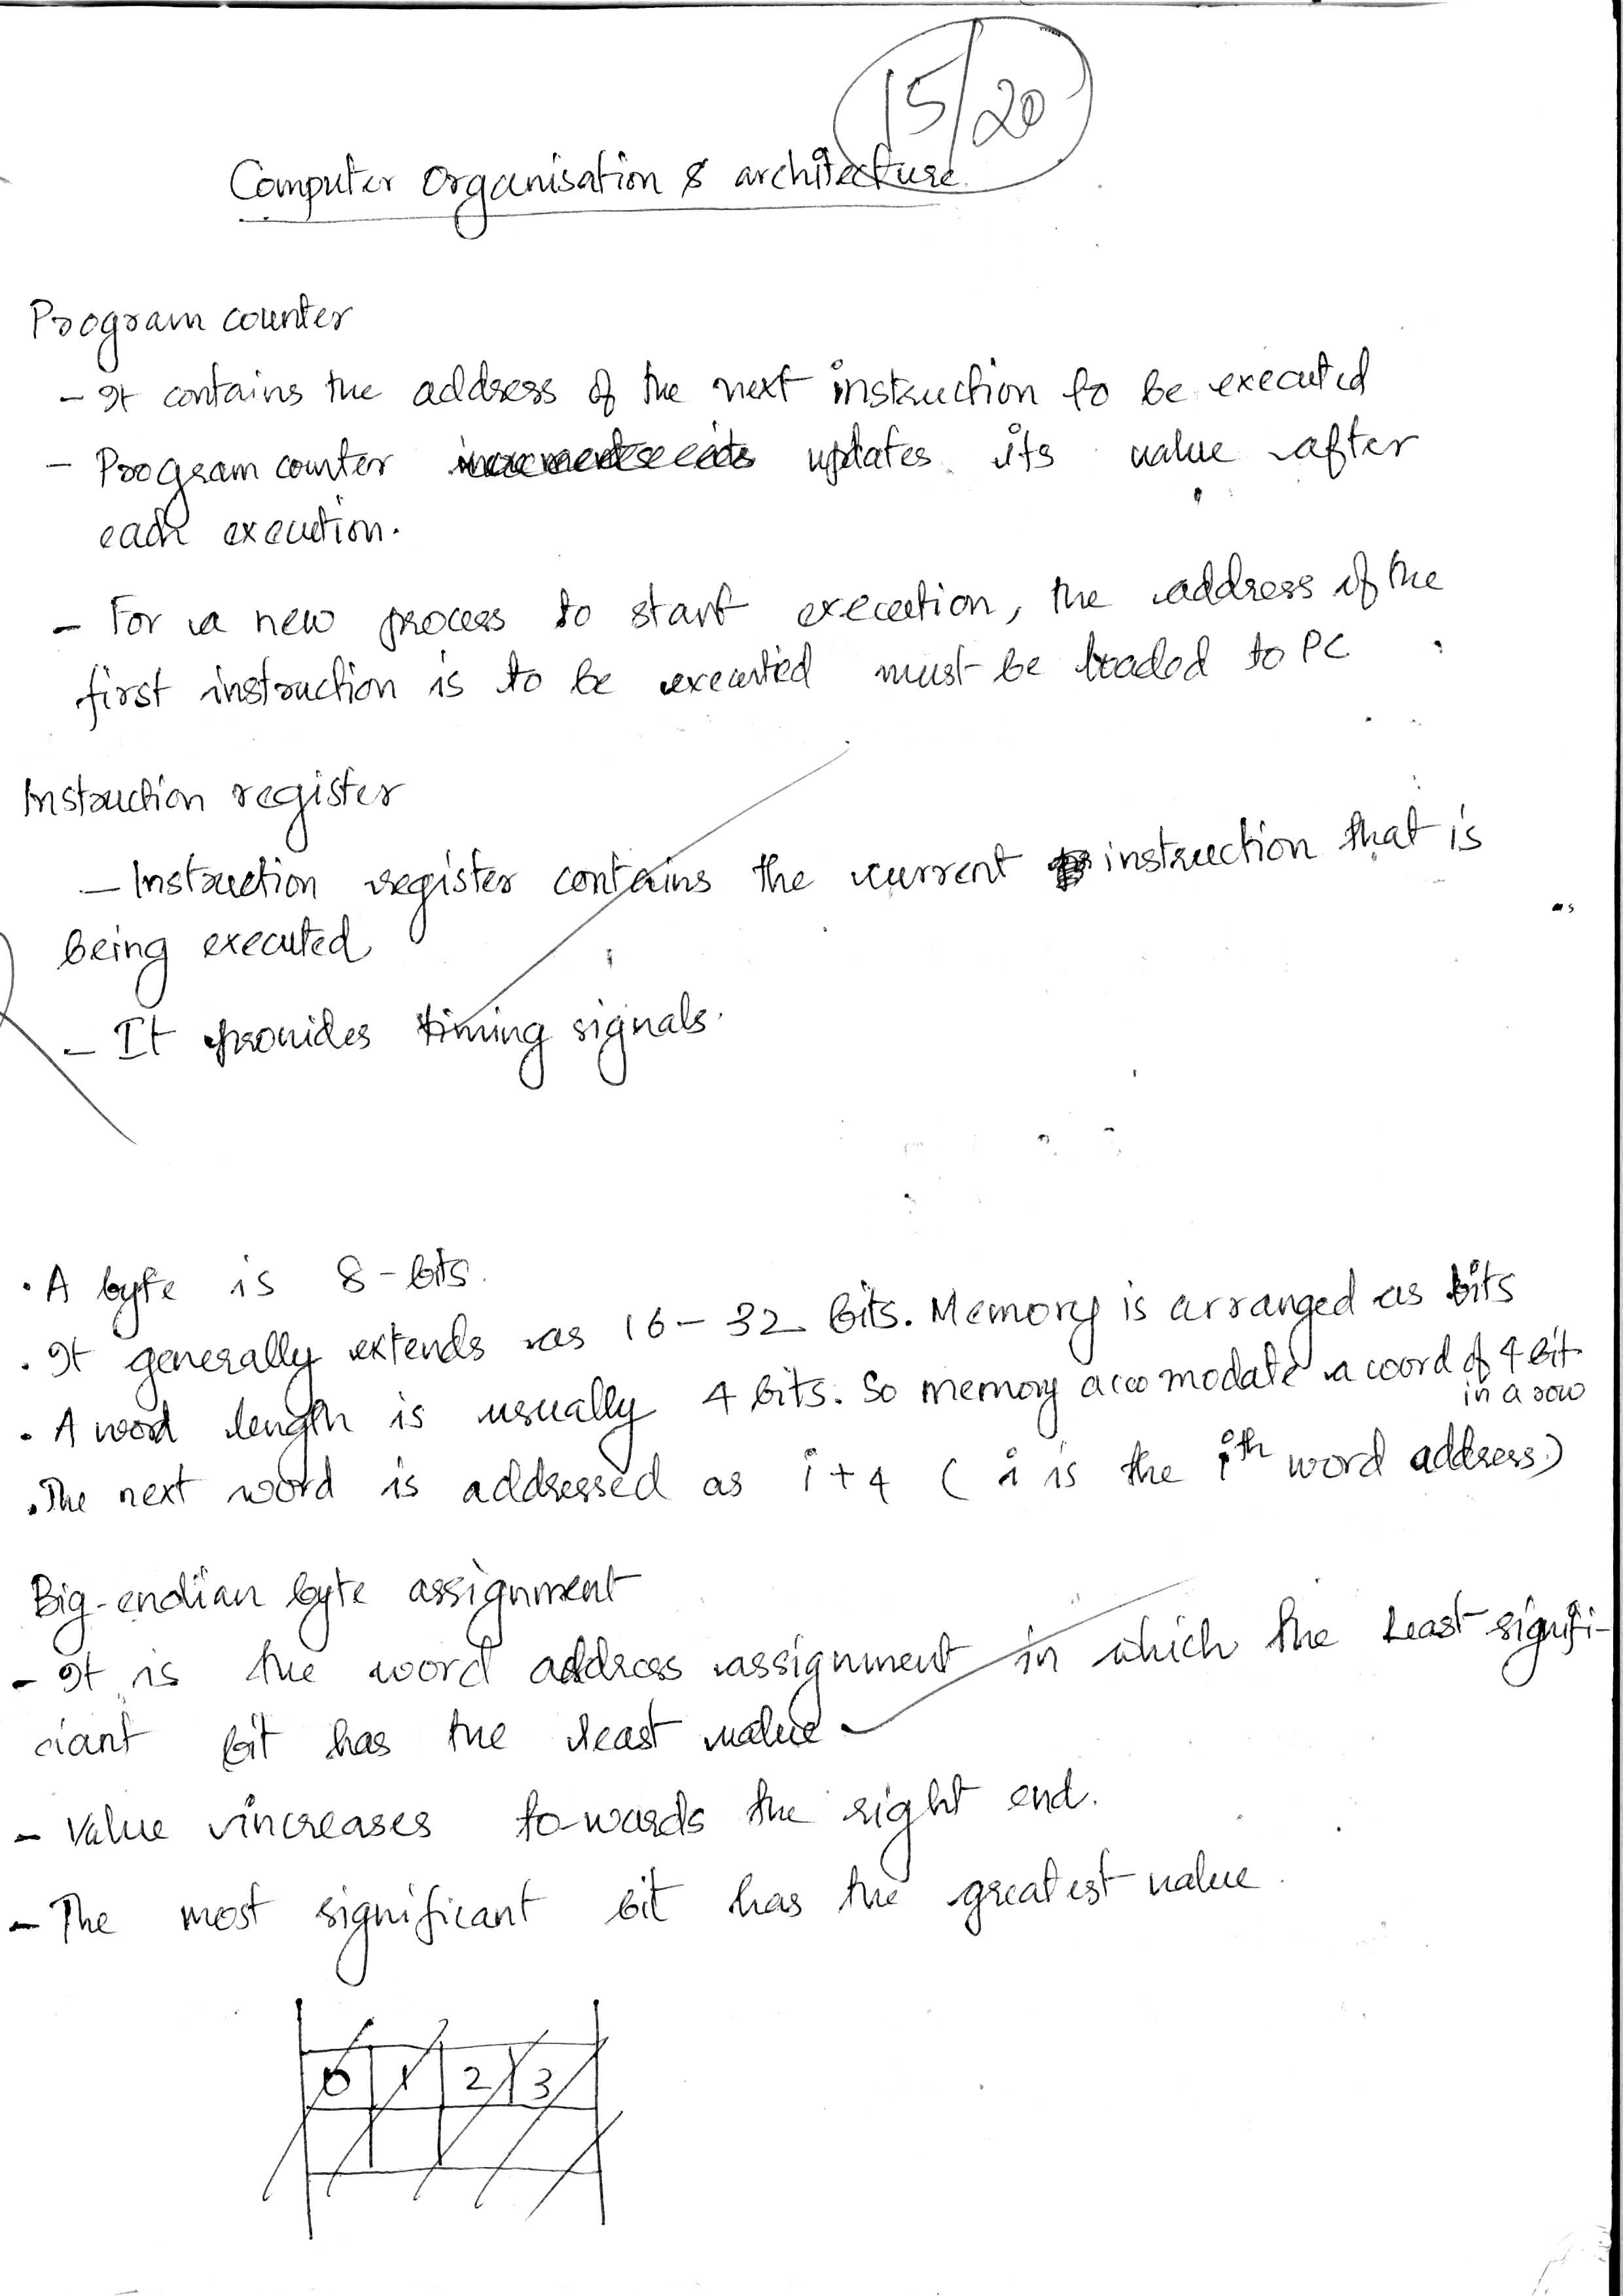 15/20
Computer Organisation & architecture.
Program counter
- It contains the address of the next instruction to be executed
- Program counter updates its value after
each execution.
- For a new process to start execution, the address of the
first instruction is to be executed must be loaded to PC
Instruction register
- Instruction register contains the current instruction that is
being executed
- It provides timing signals.
. A byte is 8-bits.
. It generally extends as 16-32 bits. Memory is arranged as bits
. A word length is usually 4 bits. So memory accomodate a word of 4 bit
in a row
. The next word is addressed as i+4 ( i is the ith word address.)
Big-endian byte assignment
- It is the word address assignment in which the Least signifi-
ciant bit has the least value
- Value increases towards the right end.
- The most significant bit has the greatest value.
0 1 2 3